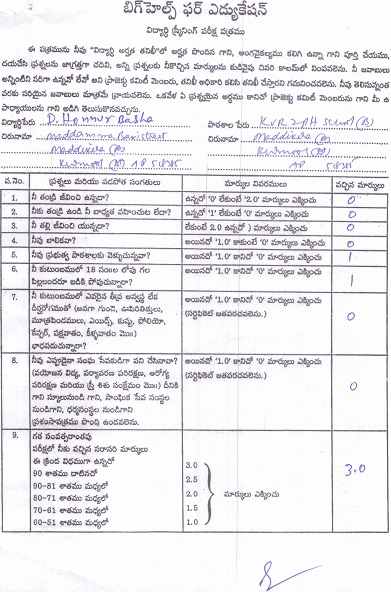 బిగ్‌హెల్ప్ ఫర్ ఎడ్యుకేషన్
విద్యార్థి స్క్రీనింగ్ పరీక్ష పత్రము
ఈ పత్రమును నీవు "విద్యార్థి అర్హత తనిఖీ"లో అర్హత పొందిన గాని, అంగవైకల్యము కలిగి ఉన్నా గాని పూర్తి చేయుము,
దయచేసి ప్రశ్నలను జాగ్రత్తగా చదివి, అన్ని ప్రశ్నలకు నీకొచ్చిన మార్కులను కుడివైపు చివరి కాలమ్‌లో నింపవలెను. నీ జవాబులు
అన్నింటిని సరిగా ఉన్నవో లేవో అని ప్రాజెక్టు కమిటీ మెంబరు, తనిఖీ అధికారి కలిసి తనిఖీ చేస్తారని గమనించవలెను. నీవు తెలిసున్నంత
వరకు సరియైన జవాబులు మాత్రమే వ్రాయవలెను. ఒకవేళ ఏ ప్రశ్నయైన అర్థము కానిచో ప్రాజెక్టు కమిటీ మెంబరును గాని మీ ఉ
పాధ్యాయులను గాని అడిగి తెలుసుకొనవచ్చును.
విద్యార్థిపేరు D. Honnur Basha పాఠశాల పేరు K.V.R Z.P.H School (B)
చిరునామా Maddamma Bavi street చిరునామా Maddikera (P)
Maddikera (M) Kurnool (Dt)
Kurnool (Dt) AP 518385 AP 518385
వ.నెం. ప్రశ్నలు మరియు వడపోత సంగతులు మార్కుల వివరములు వచ్చిన మార్కులు
1. నీ తండ్రి జీవించి ఉన్నడా? ఉన్నచో '0' లేకుంటే '2.0' మార్కులు ఎక్కించు 0
2. నీకు తండ్రి ఉండి నీ బాధ్యత వహించుట లేదా? ఉన్నచో '1' లేకుంటే '0' మార్కులు ఎక్కించు 0
3. నీ తల్లి జీవించి యున్నదా? లేకుంటే 2.0 ఉన్నచో ) మార్కులు ఎక్కించు 0
4. నీవు బాలికవా? అయినచో '1.0' కాకుంటే '0' మార్కులు ఎక్కించు 0
5. నీవు ప్రభుత్వ పాఠశాలకు వెళ్ళుచున్నావా? అయినచో '1.0' కానిచో '0' మార్కులు ఎక్కించు 1
6. నీ కుటుంబములో 18 సం॥ల లోపు గల అయినచో '1.0' కానిచో '0' మార్కులు ఎక్కించు 1
పిల్లలందరూ బడికి పోవుచున్నారా?
7. నీ కుటుంబములో ఎవరైన తీవ్ర అస్వస్థ లేక అయినచో '1.0' కానిచో '0' మార్కులు ఎక్కించు 0
దీర్ఘరోగముతో (అనగా గుండె, ఊపిరితిత్తులు, (సర్టిఫికెట్ జతపరచవలెను.)
మూత్రపిండములు, ఎయిడ్స్, కుష్ఠు, పోలియో,
కేన్సర్, పక్షవాతం, కీళ్ళవాతం మొ॥)
భాధపడుచున్నారా?
8. నీవు ఎప్పుడైనా సంఘ సేవకుడిగా పని చేసినావా? అయినచో '1.0' కానిచో '0' మార్కులు ఎక్కించు 0
(వయోజన విద్య, పర్యావరణ పరిరక్షణ, ఆరోగ్య (సర్టిఫికెట్ జతపరచవలెను.)
పరిరక్షణ మరియు స్త్రీ శిశు సంక్షేమం మొ॥) దీనికి
గాని స్కూలునుండి గాని, సాంఘిక సేవ సంస్థల
నుండిగాని, ధర్మసంస్థల నుండిగాని
ప్రశంసాపత్రము పొంది ఉండవలెను.
9. గత సంవత్సరాంతపు
పరీక్షలో నీకు వచ్చిన సరాసరి మార్కులు
ఈ క్రింద విధముగా ఉన్నచో
90 శాతము దాటినచో 3.0 3.0
90-81 శాతము మధ్యలో 2.5
80-71 శాతము మధ్యలో 2.0 మార్కులు ఎక్కించు
70-61 శాతము మధ్యలో 1.5
60-51 శాతము మధ్యలో 1.0